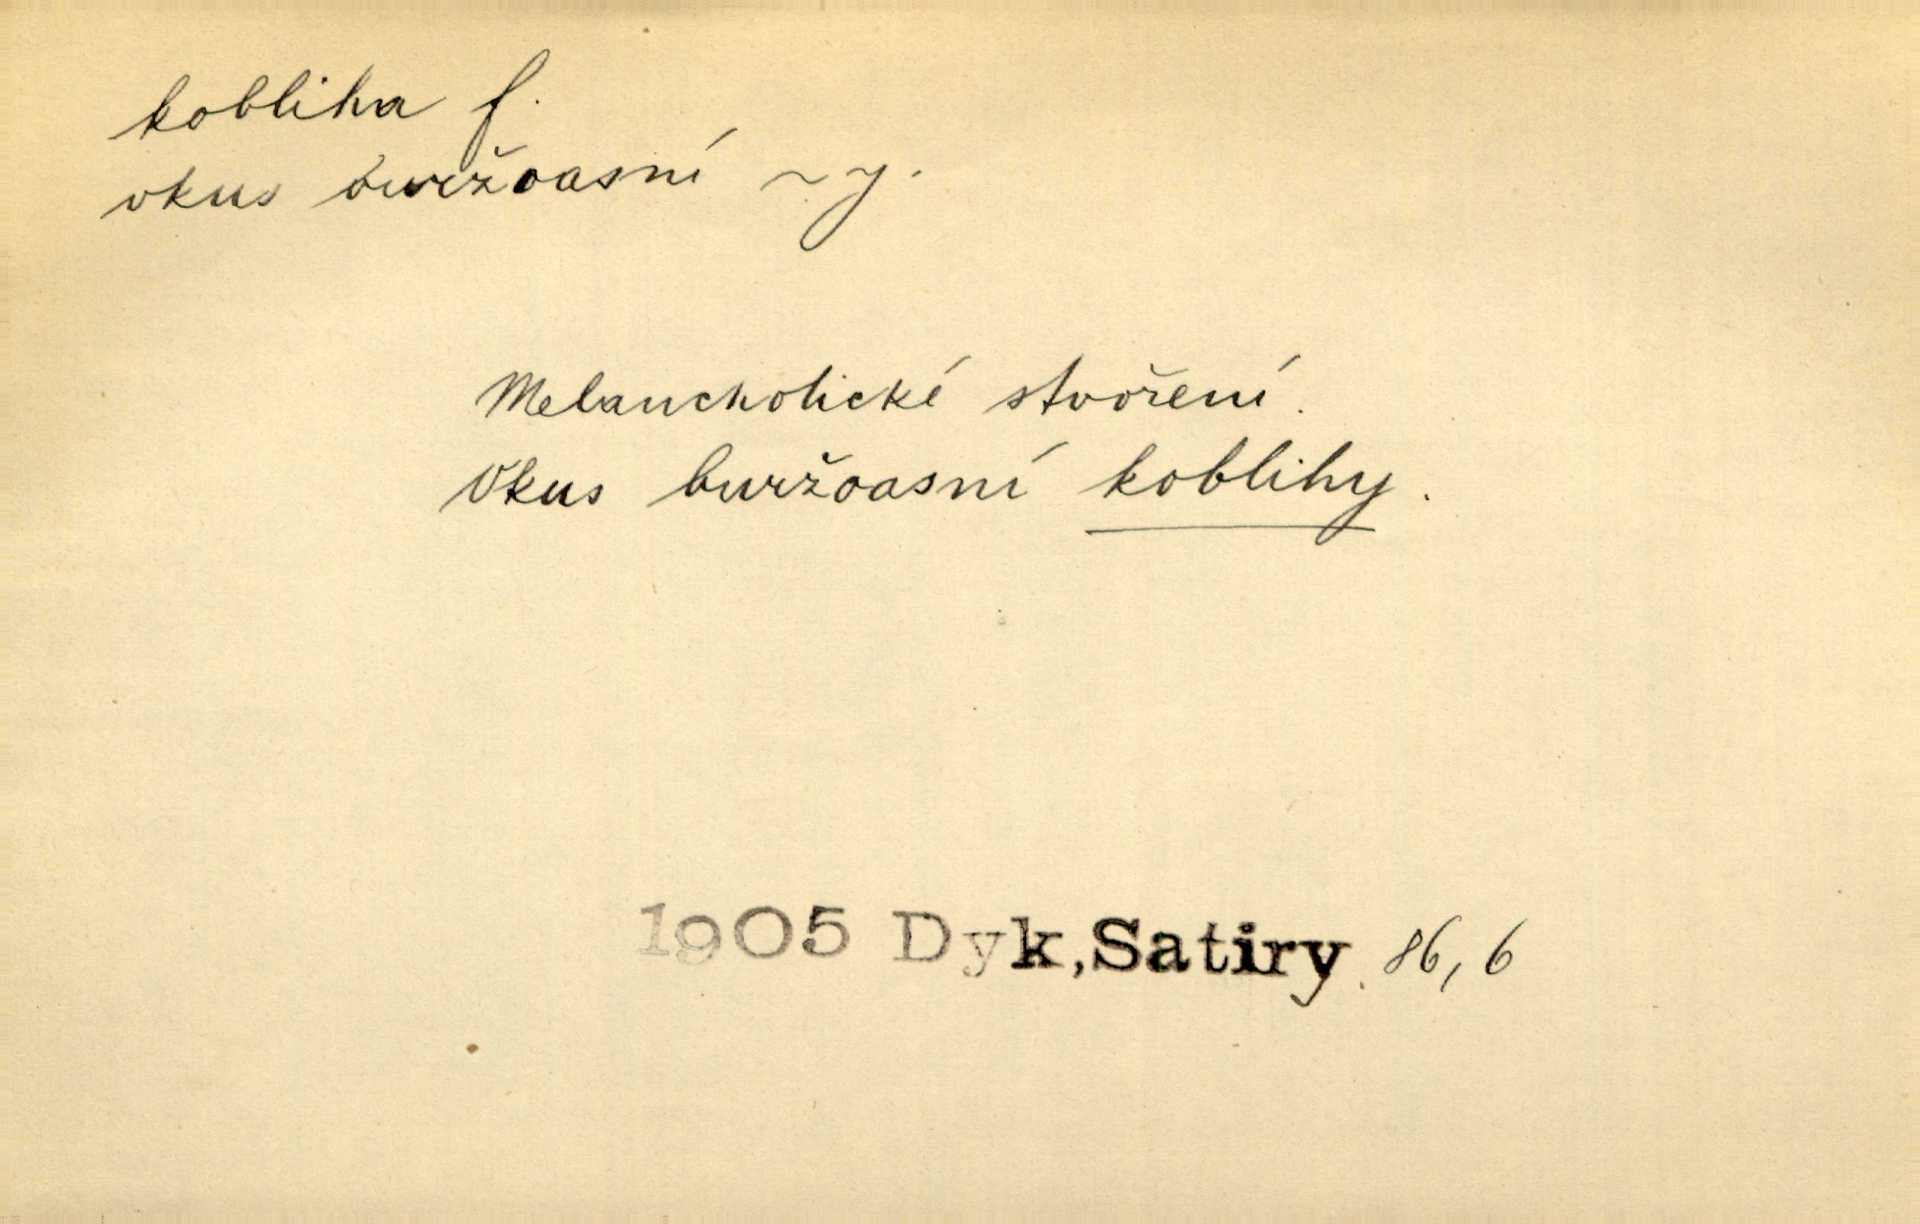 kobliha f.
okus buržoasní ~y.
Melancholické stvoření.
Okus buržoasní koblihy.
1905 Dyk, Satiry. 86, 6